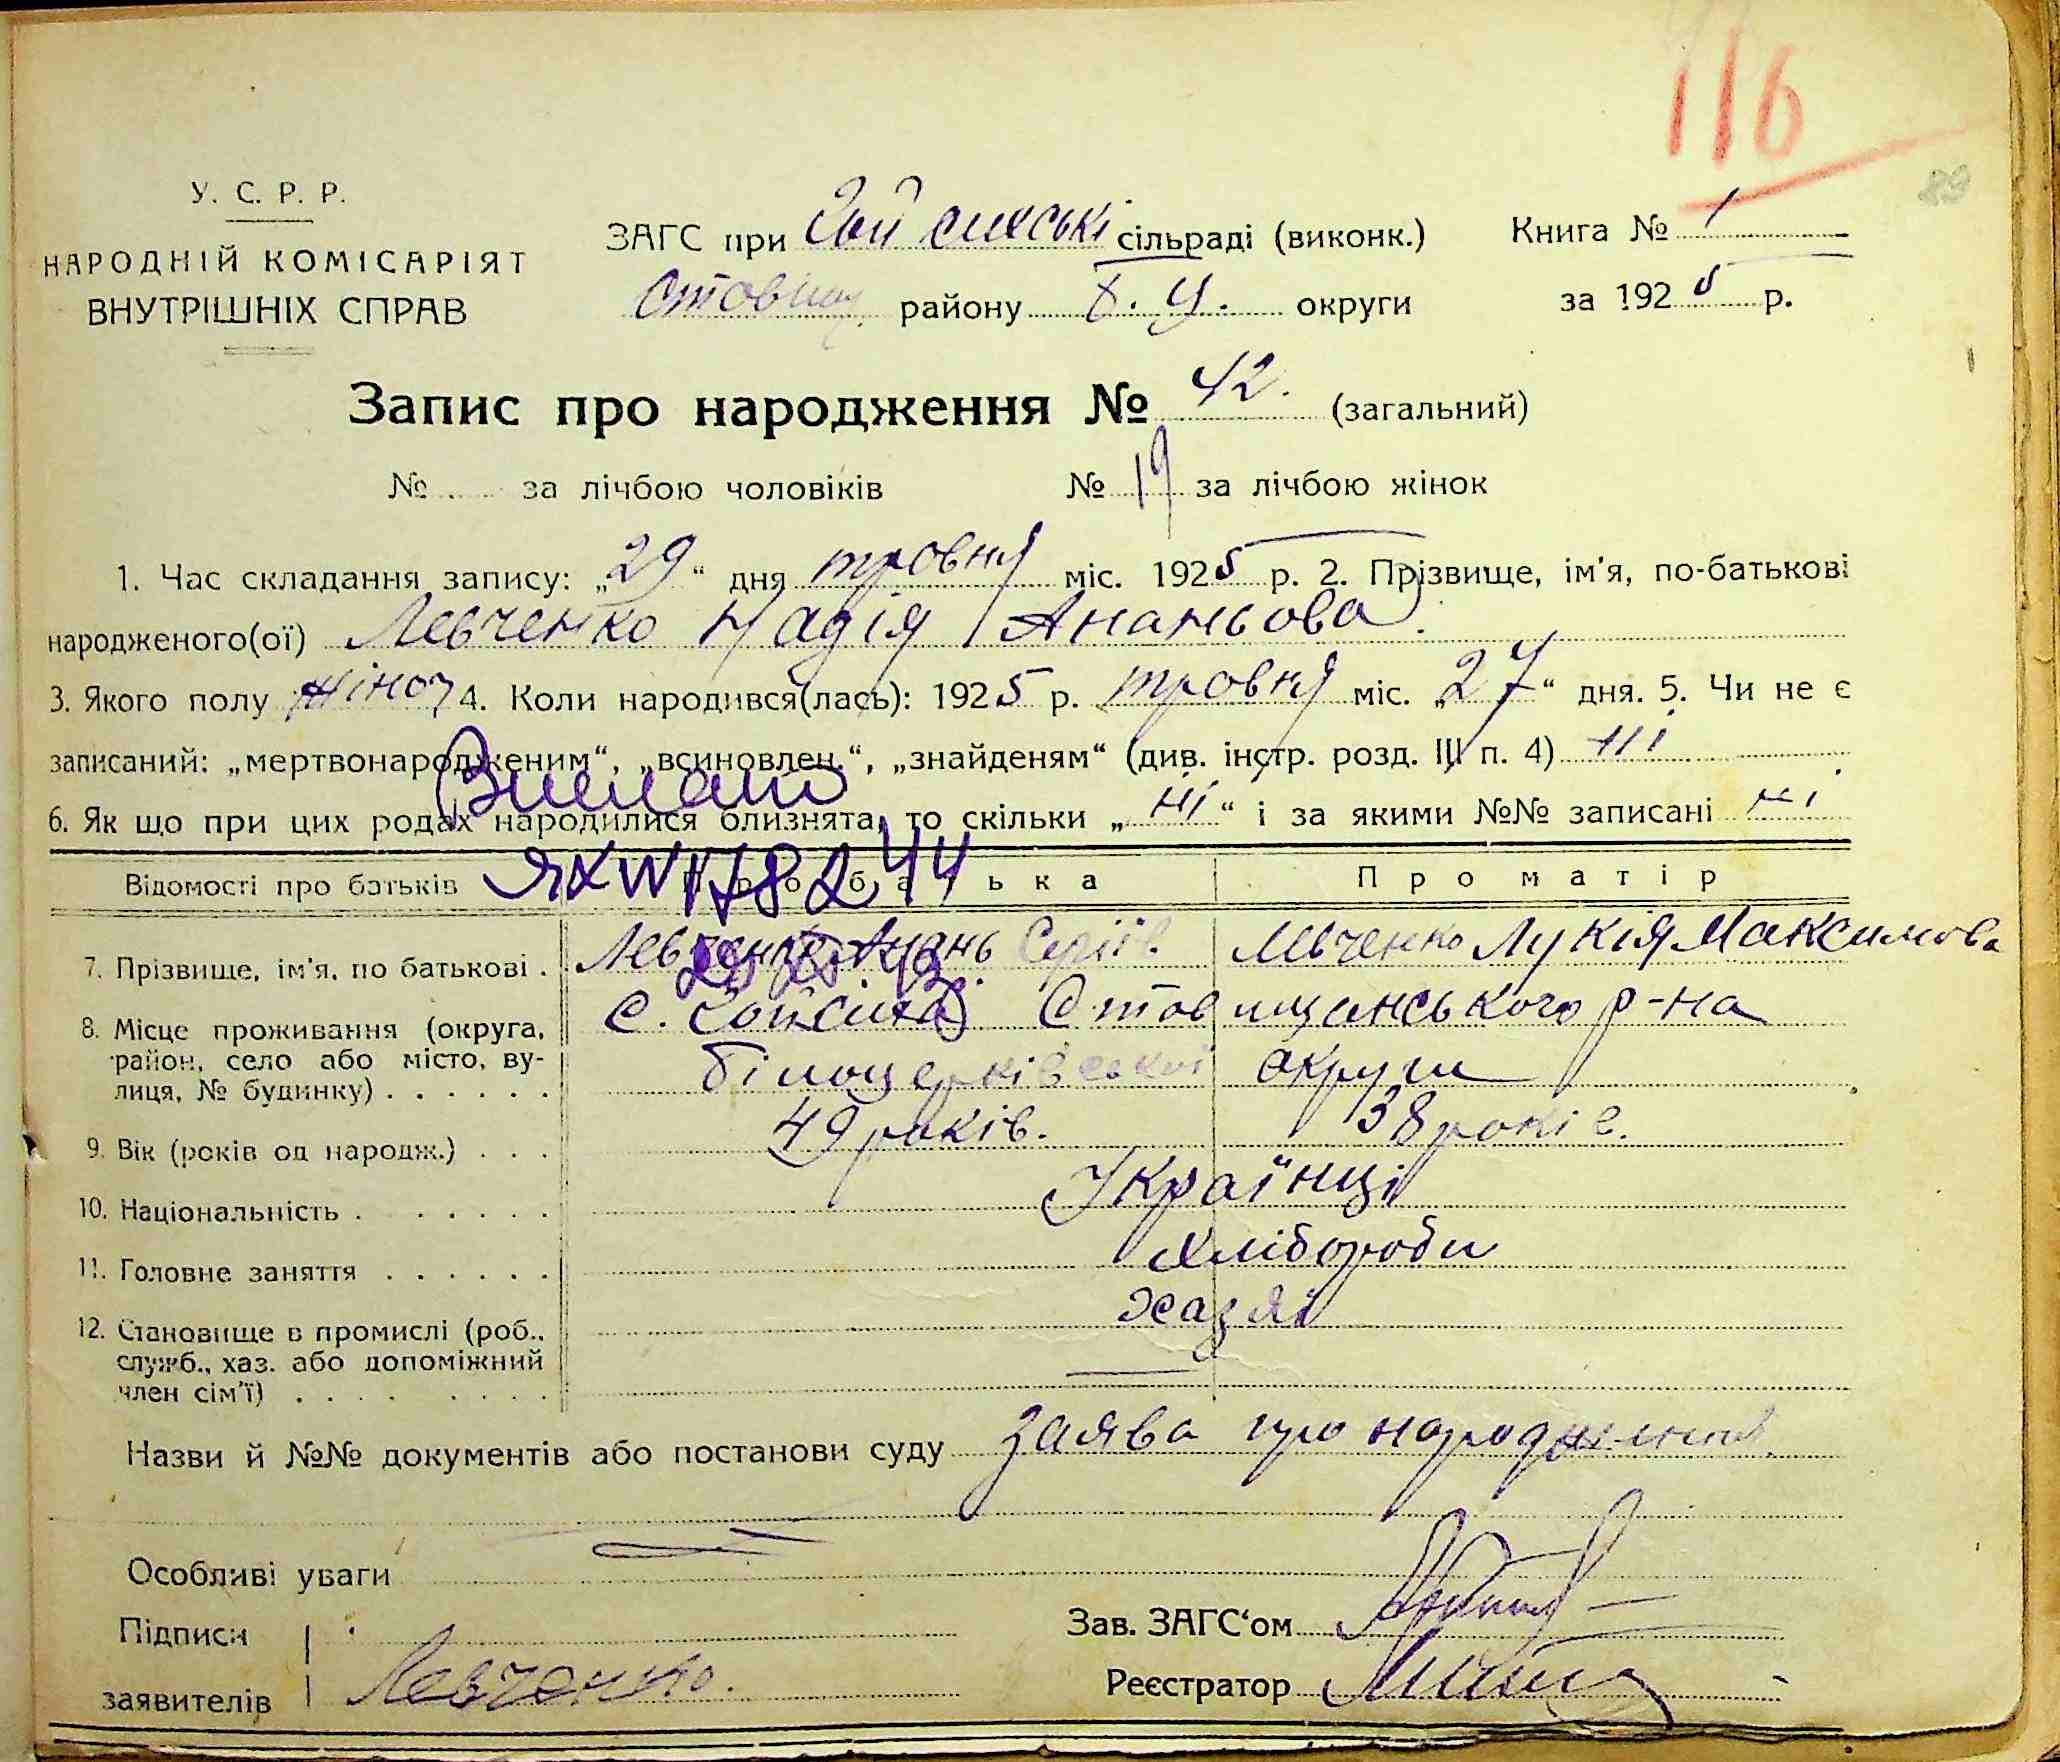 116
89
У. С. Р. Р.
НАРОДНІЙ КОМІСАРІЯТ
ВНУТРІШНІХ СПРАВ
ЗАГС при сільраді (виконк.) Книга № 1
району Б. Ц. округи за 1925 р.
Запис про народження № 42. (загальний)
№ за лічбою чоловіків № 19 за лічбою жінок
1. Час складання запису: „29“ дня тровня міс. 1925 р. 2. Прізвище, ім'я, по-батькові
народженого(ої) Левченко Надія Ананьова.
3. Якого полу жіноч 4. Коли народився(лась): 1925 р. тровня міс. „27“ дня. 5. Чи не є
записаний: „мертвонародженим“, „всиновлен.“, „знайденям“ (див. інстр. розд. III п. 4) ні
6. Як що при цих родах народилися близнята, то скільки „ні“ і за якими №№ записані ні
Відомості про батьків Про батька Про матір
7. Прізвище, ім'я, по батькові . Левченко Анань Левченко Лукія Максимова
8. Місце проживання (округа, район, село або місто, вулиця, № будинку) . . . . . . с. Стовищанського р-на
білоцерківської округи
9. Вік (років од народж.) . . . 49 років. 38 років.
10. Національність . . . . . . Українці
11. Головне заняття . . . . . . хлібороби
12. Становище в промислі (роб., служб., хаз. або допоміжний член сім'ї) . . . . . . . . хазяї
Назви й №№ документів або постанови суду заява про народження.
Особливі уваги
Підписи
заявителів Левченко.
Зав. ЗАГС'ом
Реєстратор